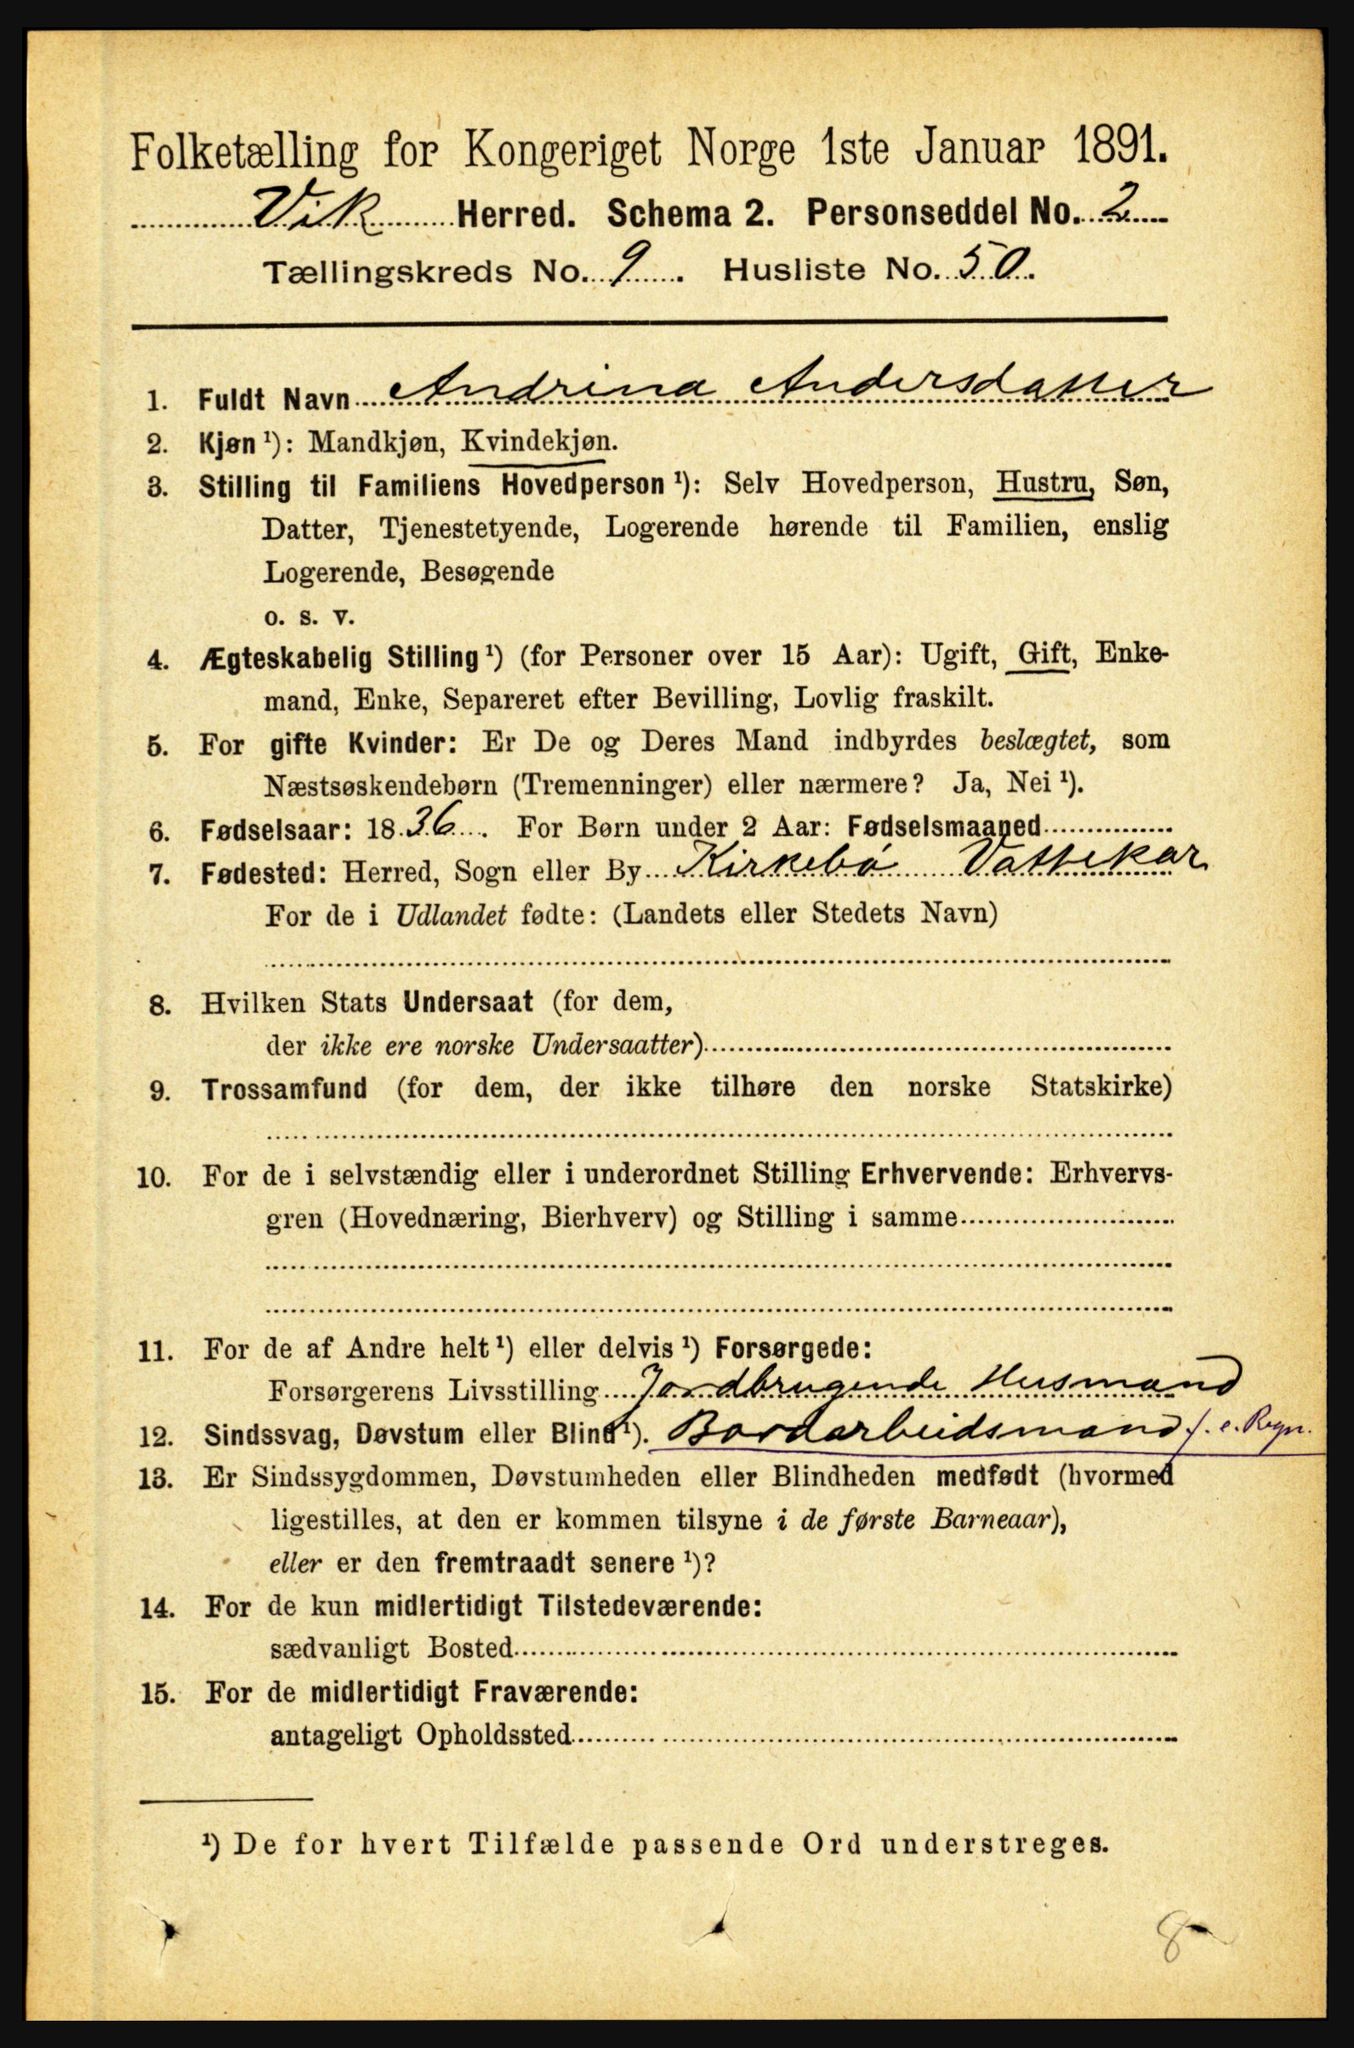 Folketælling for Kongeriget Norge 1ste Januar 1891.
Vik Herred. Schema 2. Personseddel No. 2
Tællingskreds No. 9. Husliste No. 50.
1. Fuldt Navn Andrina Andersdatter
2. Kjøn ¹): Mandkjøn, Kvindekjøn.
3. Stilling til Familiens Hovedperson ¹): Selv Hovedperson, Hustru, Søn,
Datter, Tjenestetyende, Logerende hørende til Familien, enslig
Logerende, Besøgende
o. s. v.
4. Ægteskabelig Stilling ¹) (for Personer over 15 Aar): Ugift, Gift, Enke-
mand, Enke, Separeret efter Bevilling, Lovlig fraskilt.
5. For gifte Kvinder: Er De og Deres Mand indbyrdes beslægtet, som
Næstsøskendebørn (Tremenninger) eller nærmere? Ja, Nei ¹).
6. Fødselsaar: 1836. For Børn under 2 Aar: Fødselsmaaned
7. Fødested: Herred, Sogn eller By Kirkebø Vattekar
For de i Udlandet fødte: (Landets eller Stedets Navn)
8. Hvilken Stats Undersaat (for dem,
der ikke ere norske Undersaatter)
9. Trossamfund (for dem, der ikke tilhøre den norske Statskirke)
10. For de i selvstændig eller i underordnet Stilling Erhvervende: Erhvervs-
gren (Hovednæring, Bierhverv) og Stilling i samme
11. For de af Andre helt ¹) eller delvis ¹) Forsørgede:
Forsørgerens Livsstilling Jordbrugende Husmand
12. Sindssvag, Døvstum eller Blind ¹). Bordarbeidsmand f. e. Regn.
13. Er Sindssygdommen, Døvstumheden eller Blindheden medfødt (hvormed
ligestilles, at den er kommen tilsyne i de første Barneaar),
eller er den fremtraadt senere ¹)?
14. For de kun midlertidigt Tilstedeværende:
sædvanligt Bosted
15. For de midlertidigt Fraværende:
antageligt Opholdssted
¹) De for hvert Tilfælde passende Ord understreges.
8